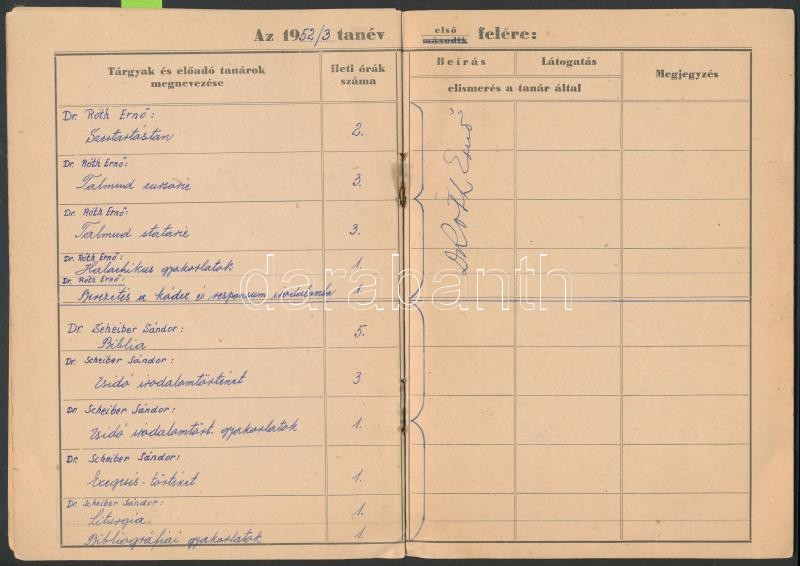 Az 1952/3 tanév első második felére:
Tárgyak és előadó tanárok megnevezése
Heti órák száma
Beírás
Látogatás
elismerés a tanár által
Megjegyzés
Dr. Róth Ernő:
Szertartástan 2.
Dr. Róth Ernő:
Talmud cursorie 3.
Dr. Róth Ernő:
Talmud statarie 3.
Dr. Róth Ernő:
Halachikus gyakorlatok 1.
Dr. Róth Ernő:
Bevezetés a kódex és responsum irodalomba 1.
Dr Róth Ernő
Dr. Scheiber Sándor:
Biblia 5.
Dr. Scheiber Sándor:
Zsidó irodalomtörténet 3
Dr. Scheiber Sándor:
Zsidó irodalomtört. gyakorlatok 1.
Dr. Scheiber Sándor:
Exegesis-történet 1.
Dr. Scheiber Sándor:
Liturgia 1.
Bibliográfiai gyakorlatok 1.
darabanth